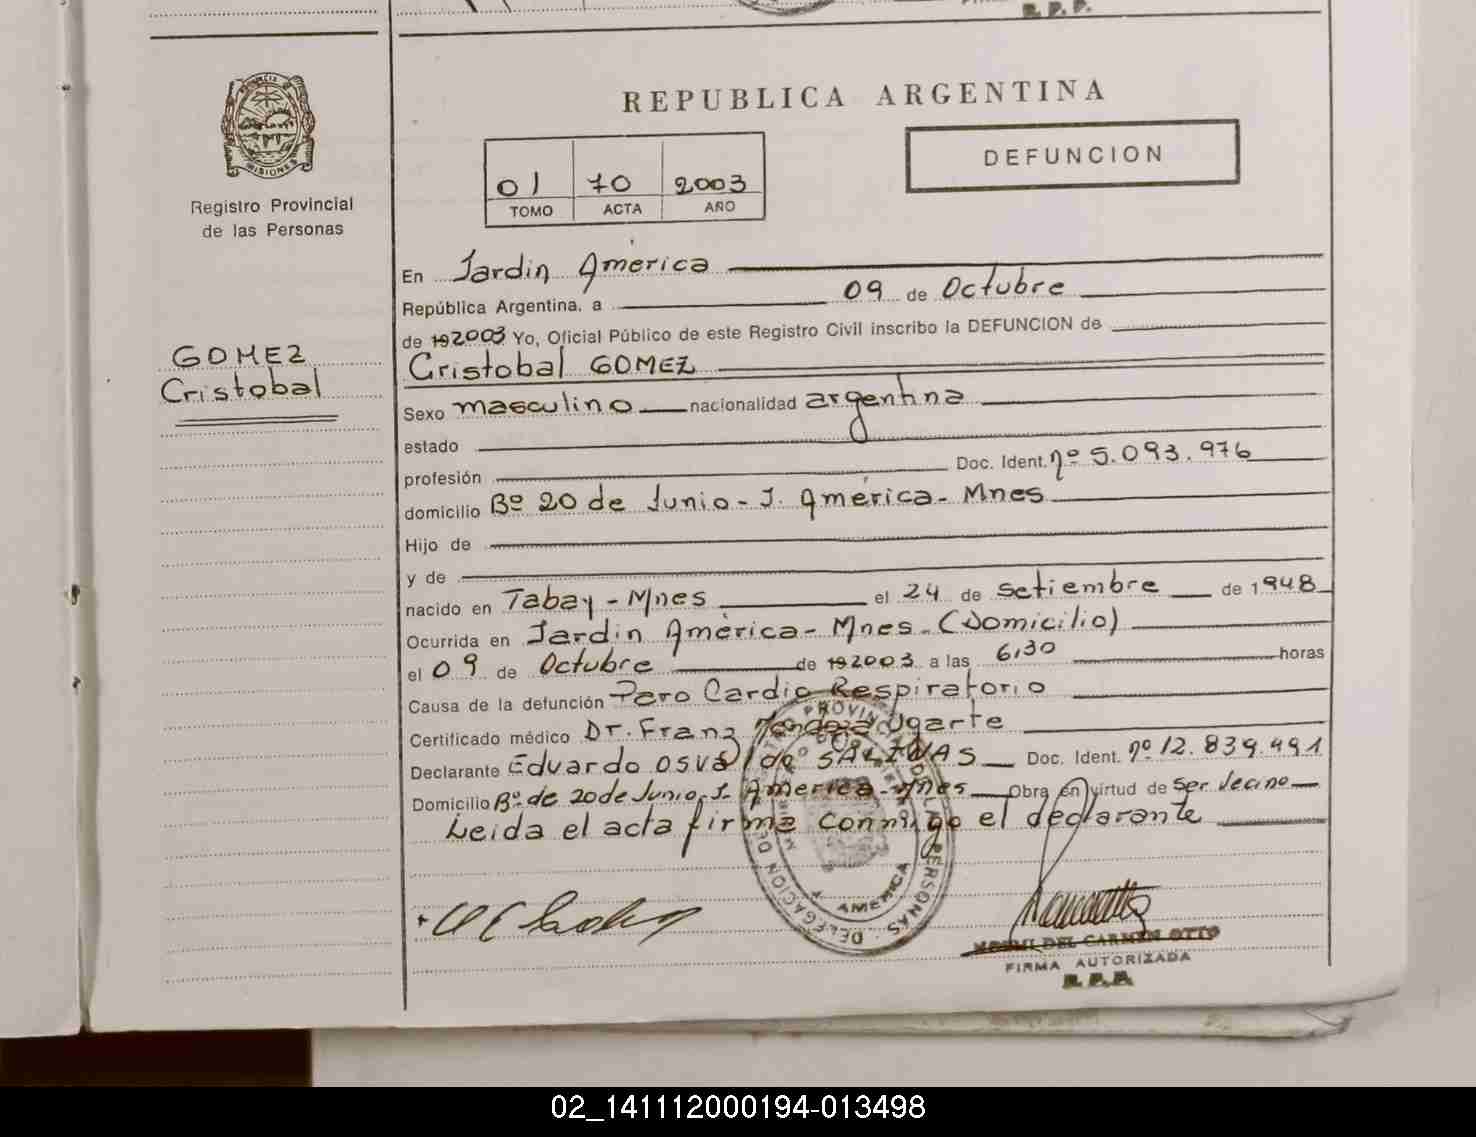 R. P. P.
PROVINCIA DE
MISIONES
Registro Provincial
de las Personas
GOMEZ
Cristobal
REPUBLICA ARGENTINA
DEFUNCION
01 70 2003
TOMO ACTA AÑO
En Jardin América
República Argentina, a 09 de Octubre
de 192003 Yo, Oficial Público de este Registro Civil inscribo la DEFUNCION de
Cristobal GOMEZ
Sexo masculino nacionalidad argentina
estado
profesión Doc. Ident. nº 5.093.976
domicilio Bº 20 de Junio - J. América - Mnes
Hijo de
y de
nacido en Tabay - Mnes el 24 de setiembre de 1948
Ocurrida en Jardin América - Mnes. (Domicilio)
el 09 de Octubre de 192003 a las 6,30 horas
Causa de la defunción Paro Cardio Respiratorio
Certificado médico Dr. Franz Mendoza Ugarte
Declarante Eduardo Osvaldo SALINAS Doc. Ident. nº 12.839.491
Domicilio Bº de 20 de Junio J. America - Mnes Obra en virtud de Ser Vecino
Leida el acta firma conmigo el declarante
DELEGACION
PERSONAS
AMERICA
DEL CARMEN OTTO
FIRMA AUTORIZADA
R. P. P.
02_141112000194-013498